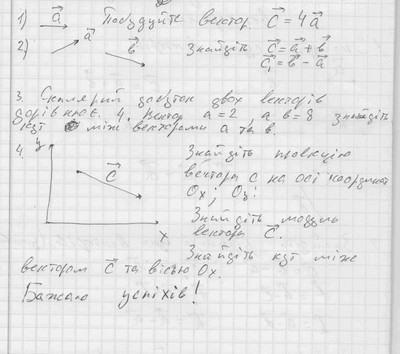 1) a⃗ Побудуйте вектор c⃗ = 4a⃗
2) a⃗ b⃗ Знайдіть c⃗ = a⃗ + b⃗
c⃗₁ = b⃗ - a⃗
3. Скалярний добуток двох векторів
дорівнює 4. Вектор a = 2, а b = 8 знайдіть
кут між векторами a та b.
4. y Знайдіть проекцію
вектора c на осі координат
c⃗ Ox; Oy!
Знайдіть модуль
x вектора c⃗.
Знайдіть кут між
вектором c⃗ та віссю Ox.
Бажаю успіхів!